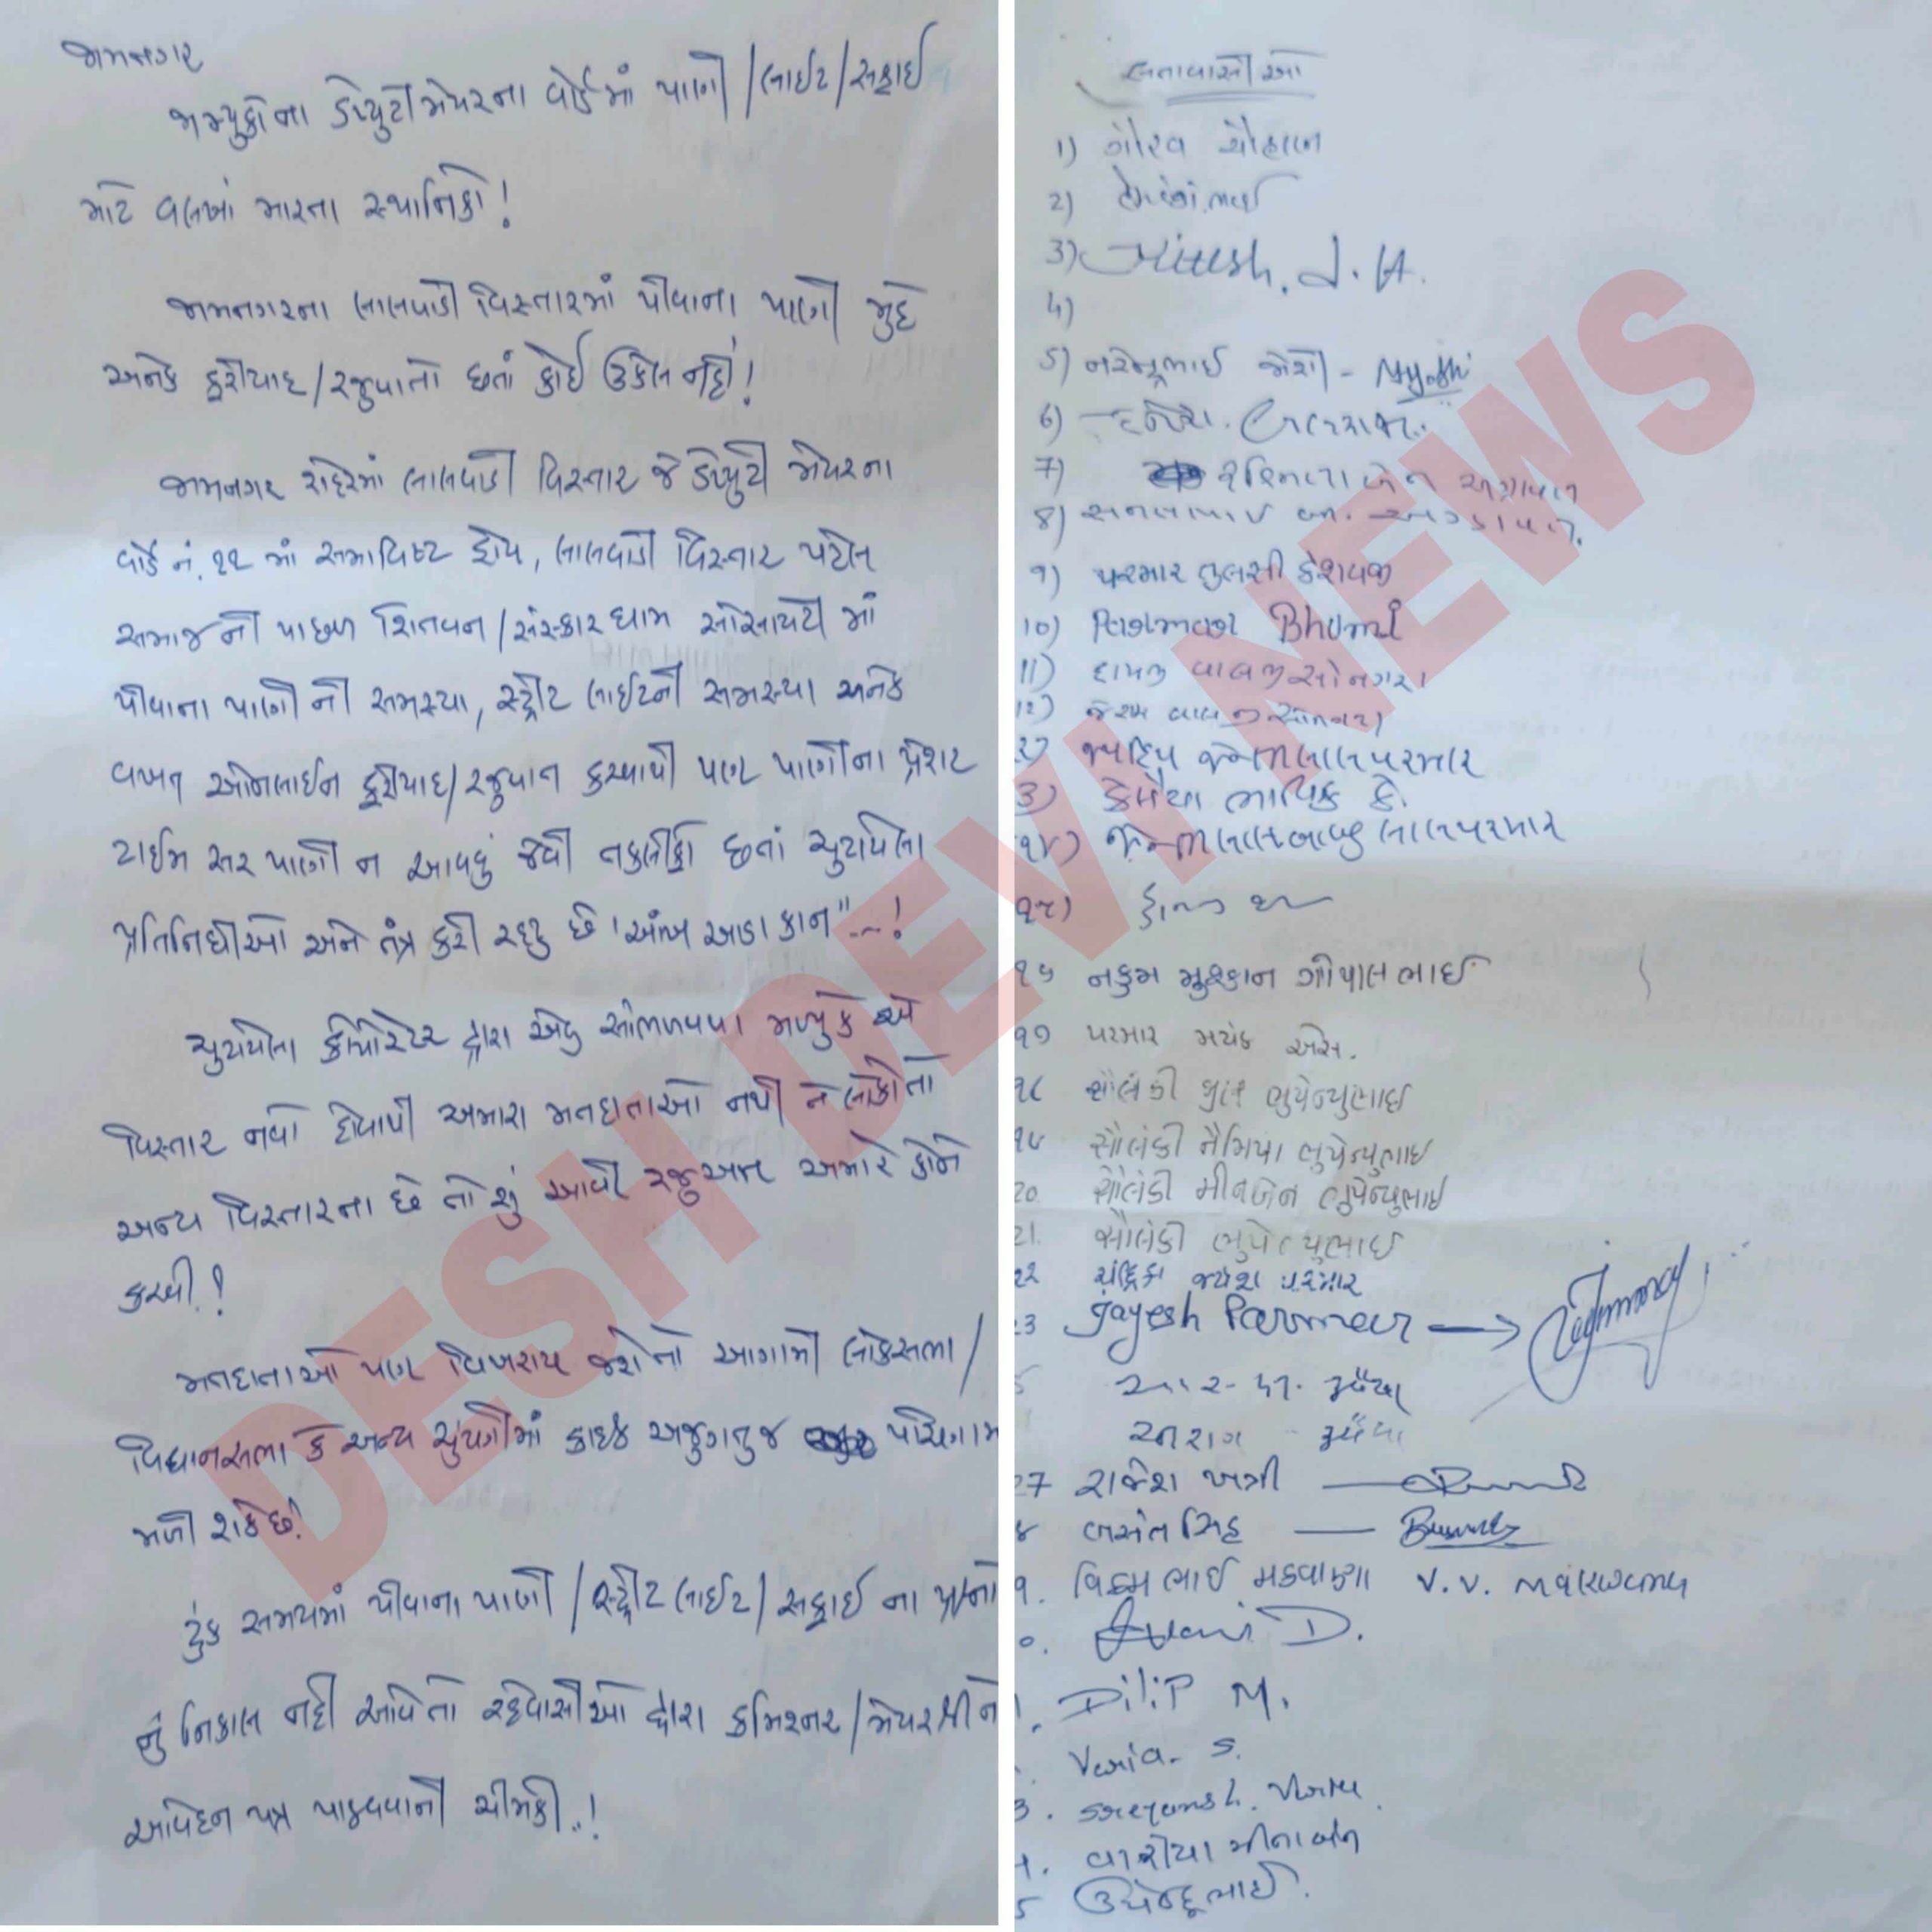 જામનગર
જામ્યુકોના ડેપ્યુટી મેયરના વોર્ડમાં પાણી/લાઈટ/સફાઈ
માટે વલખાં મારતા સ્થાનિકો!
જામનગરના લાલવાડી વિસ્તારમાં પીવાના પાણી મુદ્દે
અનેક ફરીયાદ/રજુવાતો છતાં કોઈ ઉકેલ નહીં!
જામનગર શહેરમાં લાલવાડી વિસ્તાર જે ડેપ્યુટી મેયરના
વોર્ડ નં. ૧૧ માં સમાવિષ્ટ હોય, લાલવાડી વિસ્તાર પટેલ
સમાજની પાછળ શિતવન/સંસ્કારધામ સોસાયટી માં
પીવાના પાણી ની સમસ્યા, સ્ટ્રીટ લાઈટની સમસ્યા અનેક
વખત ઓનલાઈન ફરીયાદ/રજુવાત કરવાથી પણ પાણીના પ્રેશર
ટાઈમ સર પાણી ન આવવું જેવી તકલીફો છતાં ચુંટાયેલા
પ્રતિનિધીઓ અને તંત્ર કરી રહ્યુ છે "આંખ આડા કાન"...!
ચુટાયેલા કોર્પોરેટર દ્વારા એવુ સાંભળવવા મળ્યુ કે એ
વિસ્તાર નવો હોવાથી અમારા મતદાતાઓ નથી તે લોકોતો
અન્ય વિસ્તારના છે તો શું આવી રજુઆત અમારે કોને
કરવી.!
મતદાતાઓ પણ વિખરાય જશે તો આગામી લોકસભા/
વિધાનસભા કે અન્ય ચુંટણીમાં કાઈક અજુગતુજ પરિણામ
મળી શકે છે!
ટુંક સમયમાં પીવાના પાણી/સ્ટ્રીટ લાઈટ/સફાઈ ના પ્રશ્નો
નું નિકાલ નહી આવેતો રહેવાસીઓ દ્વારા કમિશ્નર/મેયરશ્રીને
આવેદન પત્ર પાઠવવાની ચીમકી..!
લતાવાસીઓ
1) ગૌરવ ચૌહાણ
2)
3) Mitesh. J. H.
4)
5) નરેન્દ્રભાઈ જોશી - Nyoshi
6)
7) બેન અગ્રાવત
8)
9) પરમાર તુલસી કેશવજી
10) Bhumi
11) વાલજી સોનગરા
12)
૨) જયદિપ જેન્તીલાલ પરમાર
3) કેમૈયા ભાવિક કે.
૧૪) જેન્તીલાલ બાબુલાલ પરમાર
૧૫)
૧૬ નકુમ મુસ્કાન ગોપાલભાઈ
૧૭ પરમાર મયંક એસ.
૧૮ સોલંકી ભુપેન્દ્રભાઈ
૧૯ સોલંકી નૈમિષા ભુપેન્દ્રભાઈ
20. સોલંકી મીનાબેન ભુપેન્દ્રભાઈ
21. સોલંકી ભુપેન્દ્રભાઈ
૨૨ ચંદ્રિકા જયેશ પરમાર
23 Jayesh Parmar
27 રાજેશ ખત્રી
૪ બસંત સિંહ
9. વિક્રમભાઈ મકવાણા V. V. Makwana
0. D.
1. Dilip M.
Varia. S.
3. Shreyansh. Varia.
4. વારીયા મીનાબેન
5 ઉપેન્દ્રભાઈ.
DESH DEVI NEWS